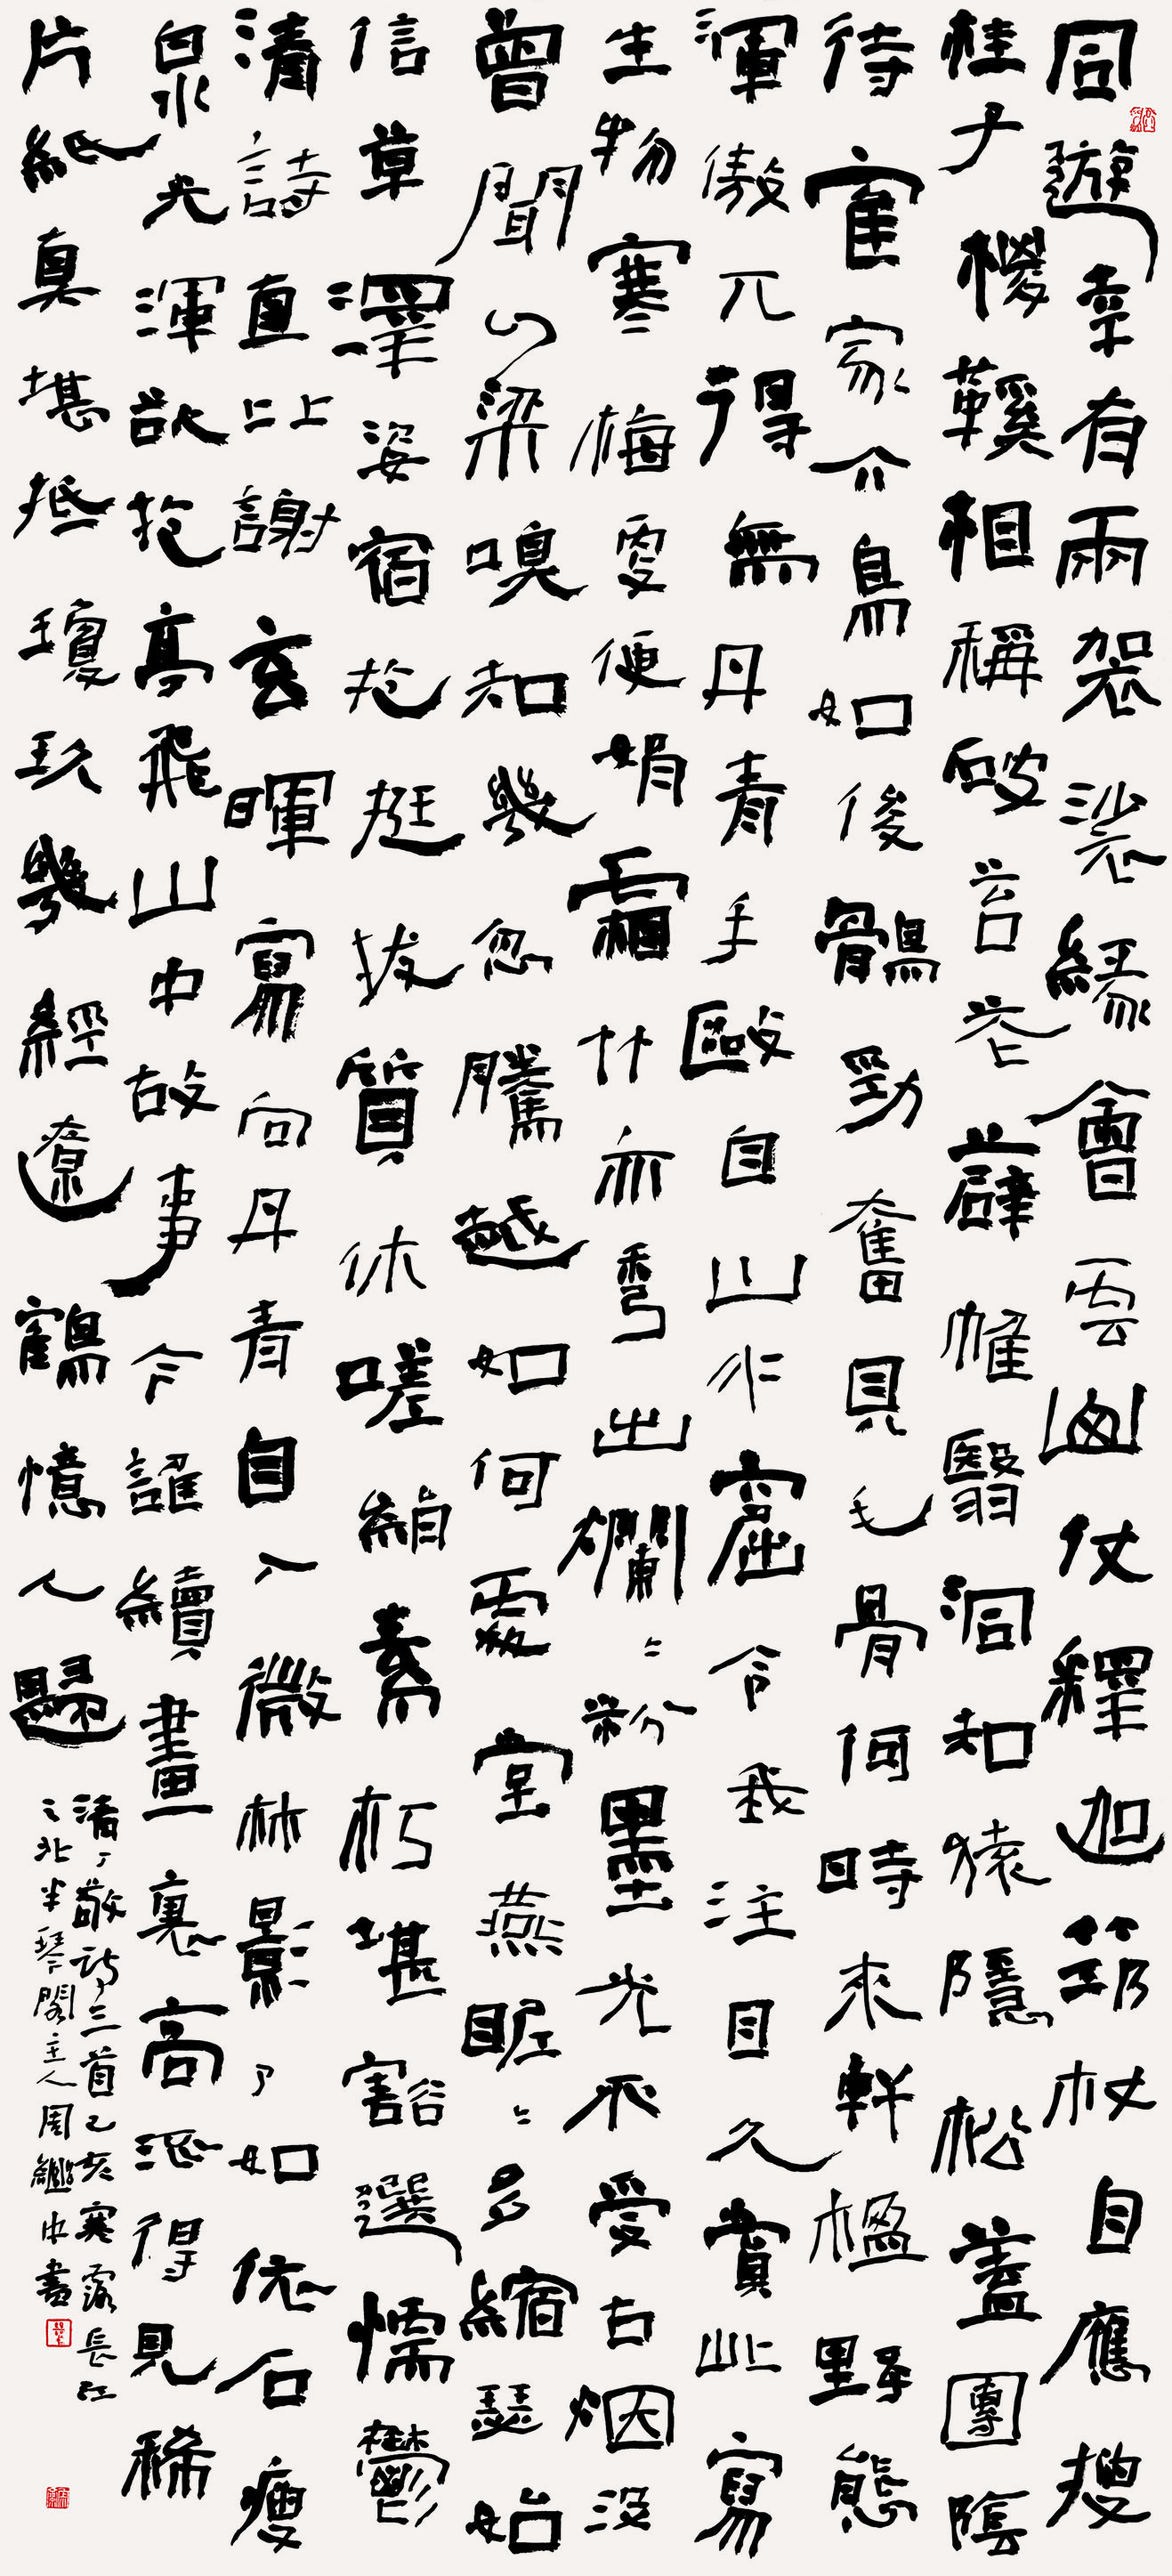 同遊幸有兩袈裟緣會雲幽仗釋迦筇杖自應搜
桂子椶鞵相稱破苔苍薜帷翳洞知猿隱松蓋團陰
待寉家个鳥如後鶻勁奮見毛骨何時來軒檻野態
渾傲兀得無丹青手毆自山水窟令我注目久賞此寫
生物寒梅雯便娟霜竹亦彎出斕〻粉墨光不愛古烟没
曾聞以梁嗅知幾忽騰越如何處堂燕眤〻多縮瑟始
信草澤姿宿抱挺拔質休嗟絹素朽堪豁選懦鬱
清詩直比謝玄暉寫向丹青自入微林影了如依石瘦
泉光渾欲抱亭飛山中故事今誰續畫裏高風得見稀
片紙真堪抵瓊玖幾經遼鶴憶人歸
清丁敬詩三首己亥寒露長江
之北半琴閣主人周繼中書